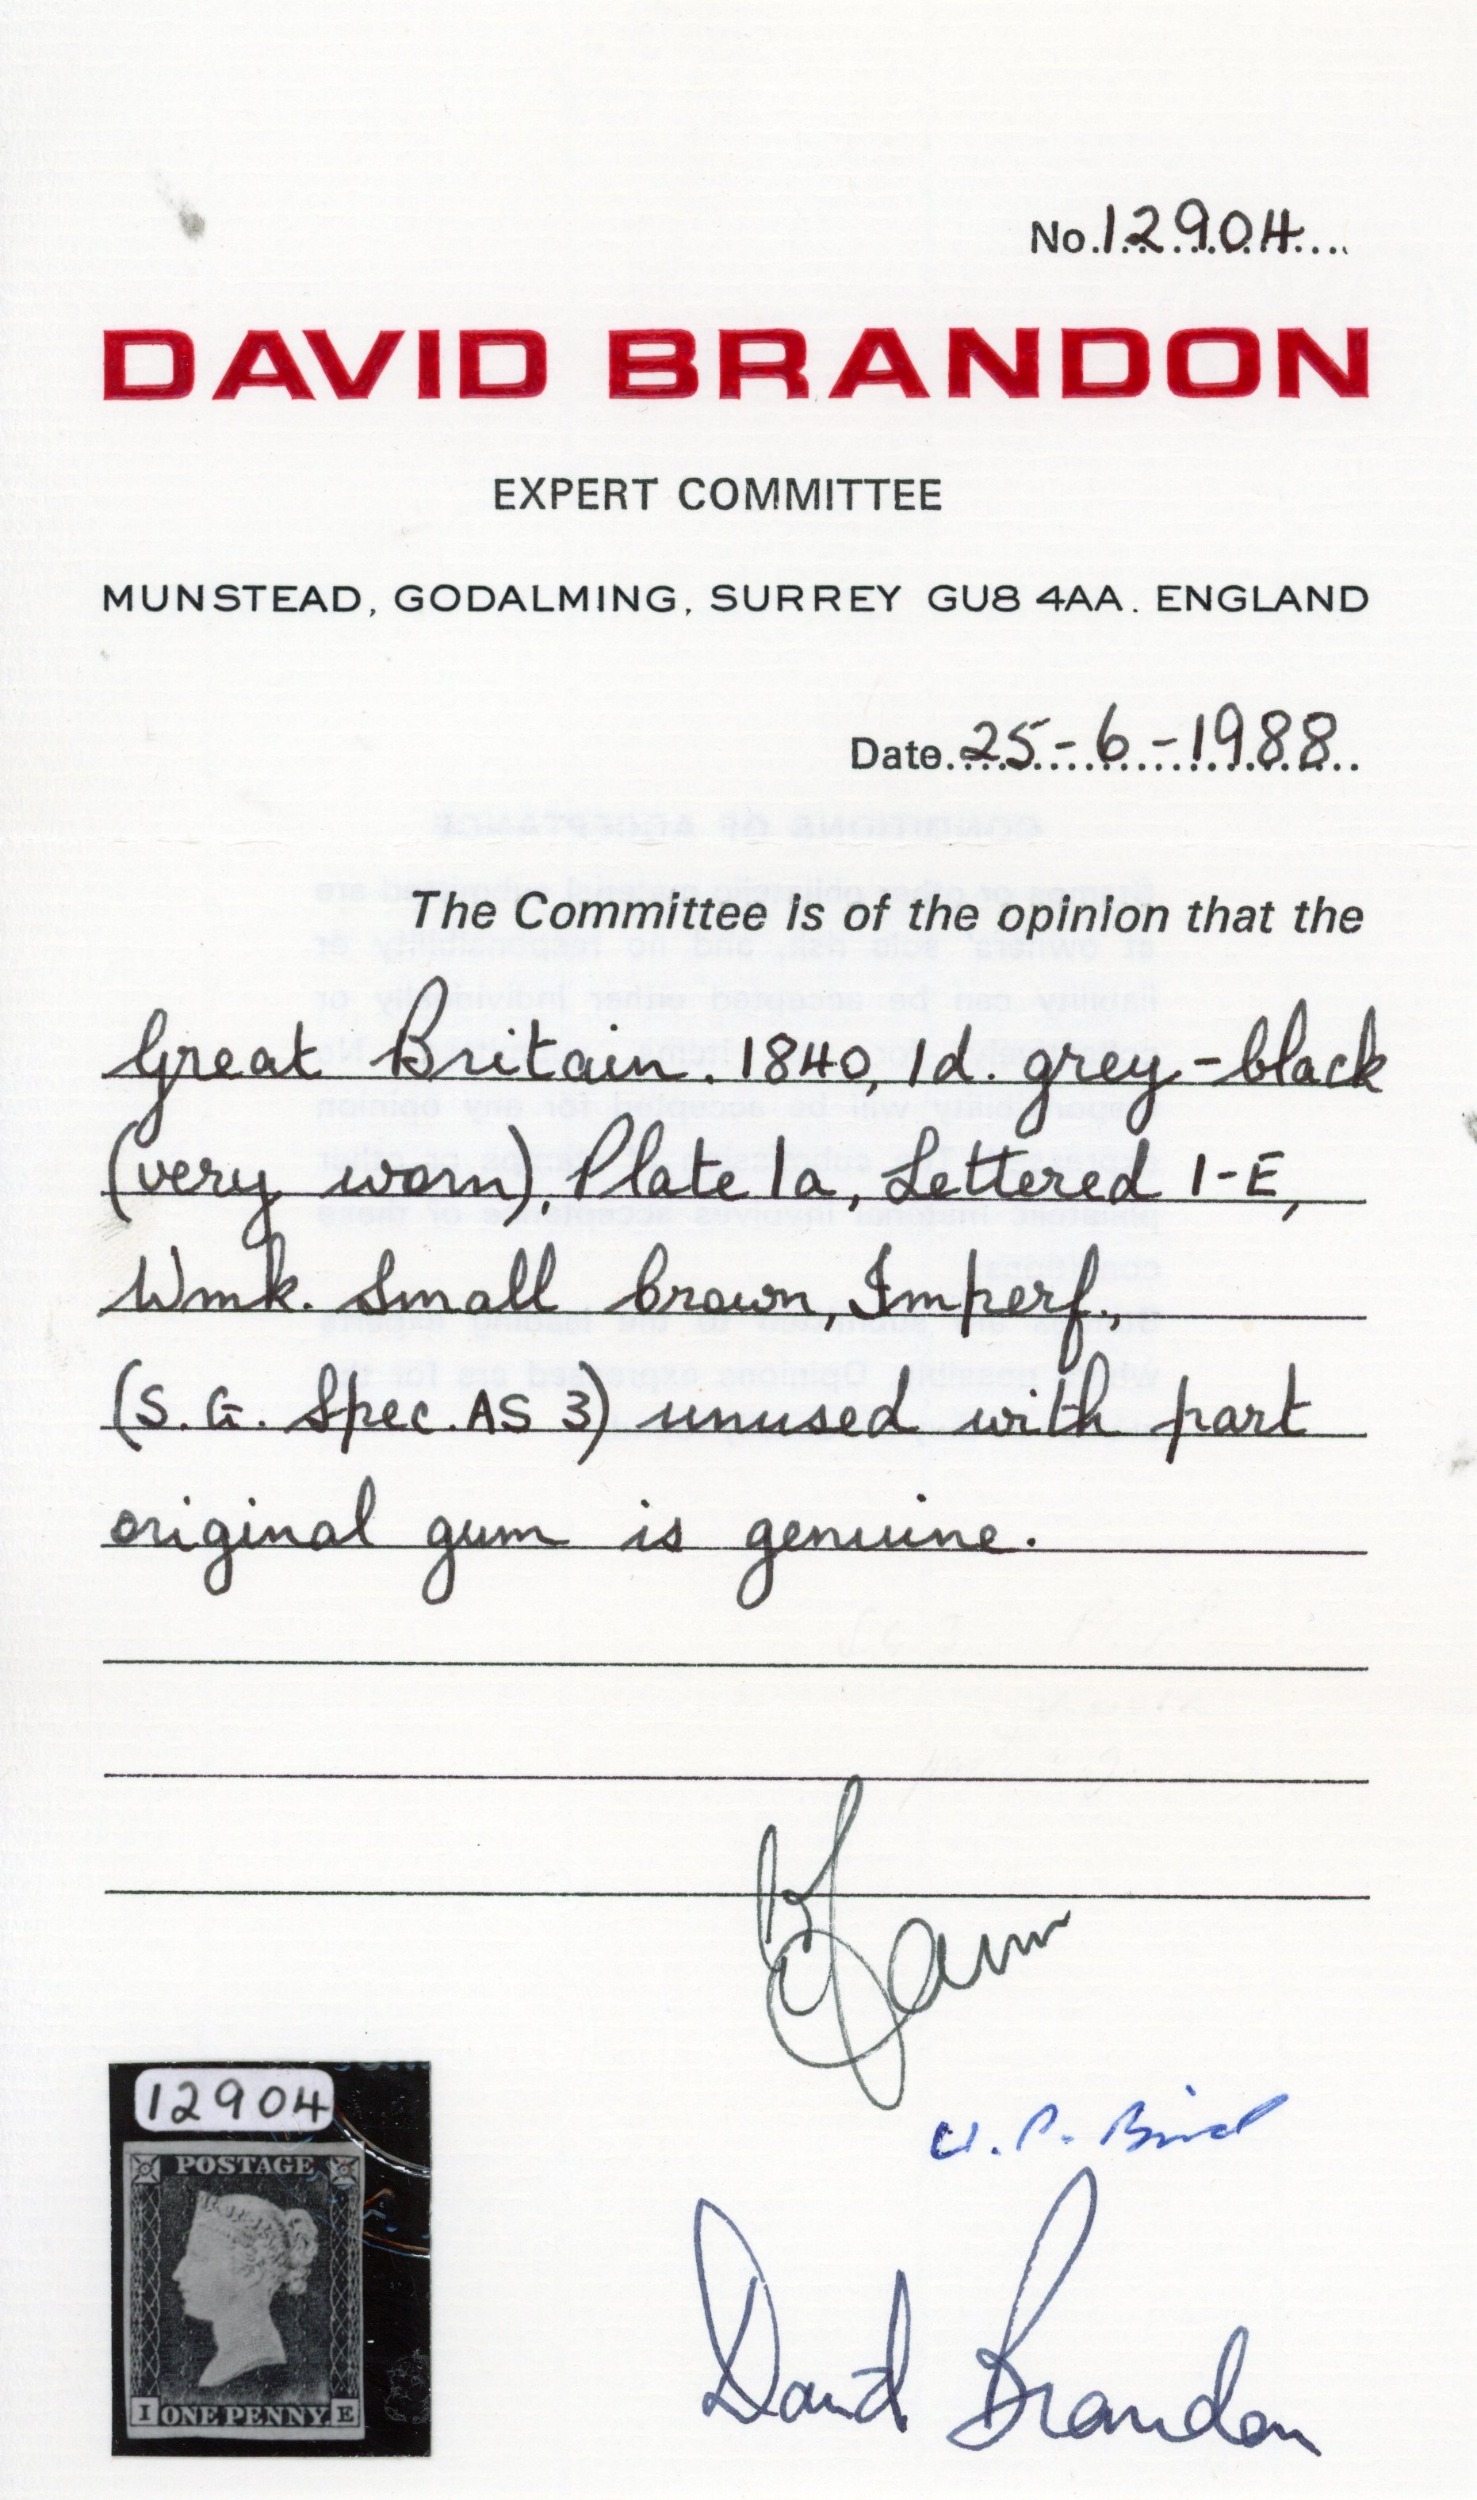 No. 12904
DAVID BRANDON
EXPERT COMMITTEE
MUNSTEAD, GODALMING, SURREY GU8 4AA. ENGLAND
Date 25-6-1988
The Committee is of the opinion that the
Great Britain. 1840, 1d. grey-black
(very worn), Plate 1a, Lettered I-E,
Wmk. Small brown, Imperf.,
(S.G. Spec. AS 3) unused with part
original gum is genuine.
12904
POSTAGE
I ONE PENNY. E
David Brandon